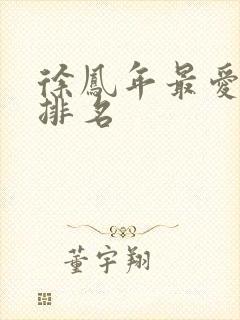 徐鳳年最愛
排名
董宇翔